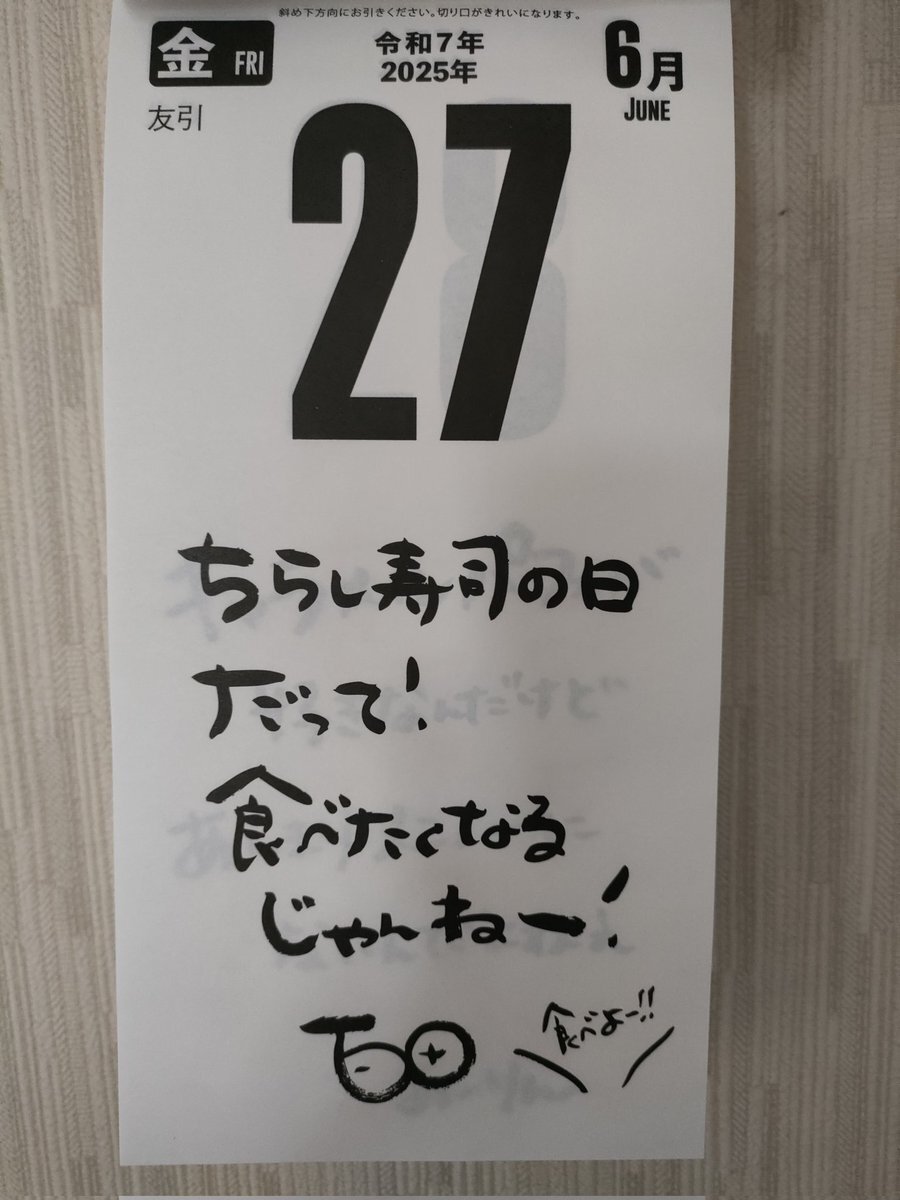 斜め下方向にお引きください。切り口がきれいになります。
金 FRI
令和7年
2025年
6月
JUNE
友引
27
ちらし寿司の日
だって!
食べたくなる
じゃんねー!
食べよー!!